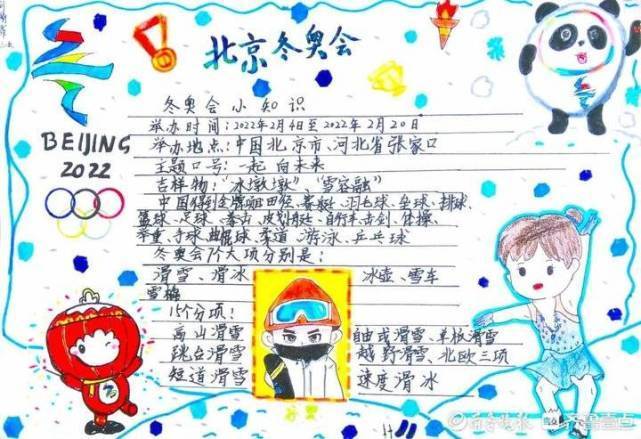 北京冬奥会
冬奥会小知识
举办时间:2022年2月4日至2022年2月20日
举办地点:中国北京市、河北省张家口
主题口号:一起向未来
吉祥物:"冰墩墩"、"雪容融"
BEIJING
2022
中国得到金牌 田径、赛艇、羽毛球、垒球、排球、
篮球、足球、拳击、皮划艇、自行车、击剑、体操、
举重、手球、曲棍球、柔道、游泳、乒乓球
冬奥会7个大项分别是:
滑雪、滑冰 冰壶、雪车
雪橇
15个分项:
高山滑雪 自由式滑雪、单板滑雪
跳台滑雪 越野滑雪、北欧三项
短道滑雪 速度滑冰